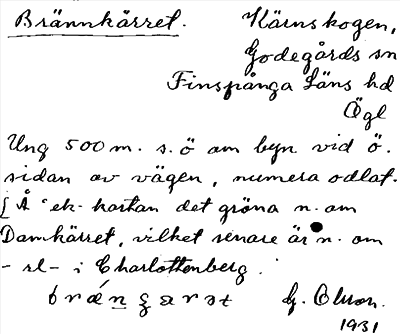 Brännkärret. Kärnskogen,
Godegårds sn
Finspånga Läns hd
Ögl
Ung 500 m. s.ö om byn vid ö.
sidan av vägen, numera odlat.
[Å ek-kartan det gröna n. om
Damkärret, vilket senare är n. om
- rl - i Charlottenberg.
G. Olson.
1931